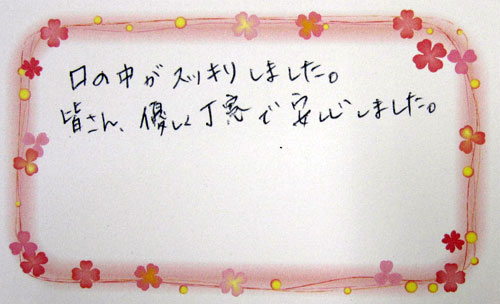 口の中がスッキリしました。
皆さん、優しく丁寧で安心しました。